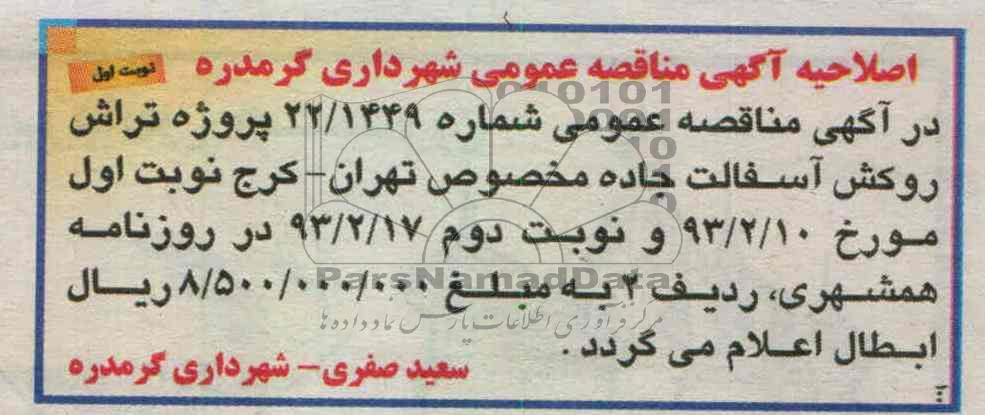 اصلاحیه آگهی مناقصه عمومی شهرداری گرمدره نوبت اول
در آگهی مناقصه عمومی شماره ۲۲/۱۴۴۹ پروژه تراش
روکش آسفالت جاده مخصوص تهران-کرج نوبت اول
مورخ ۹۳/۲/۱۰ و نوبت دوم ۹۳/۲/۱۷ در روزنامه
همشهری، ردیف ۲ به مبلغ ۸/۵۰۰/۰۰۰/۰۰۰ ریال
ابطال اعلام می گردد.
سعید صفری- شهرداری گرمدره
ParsNamadData
مرکز فرآوری اطلاعات پارس نماد داده ها